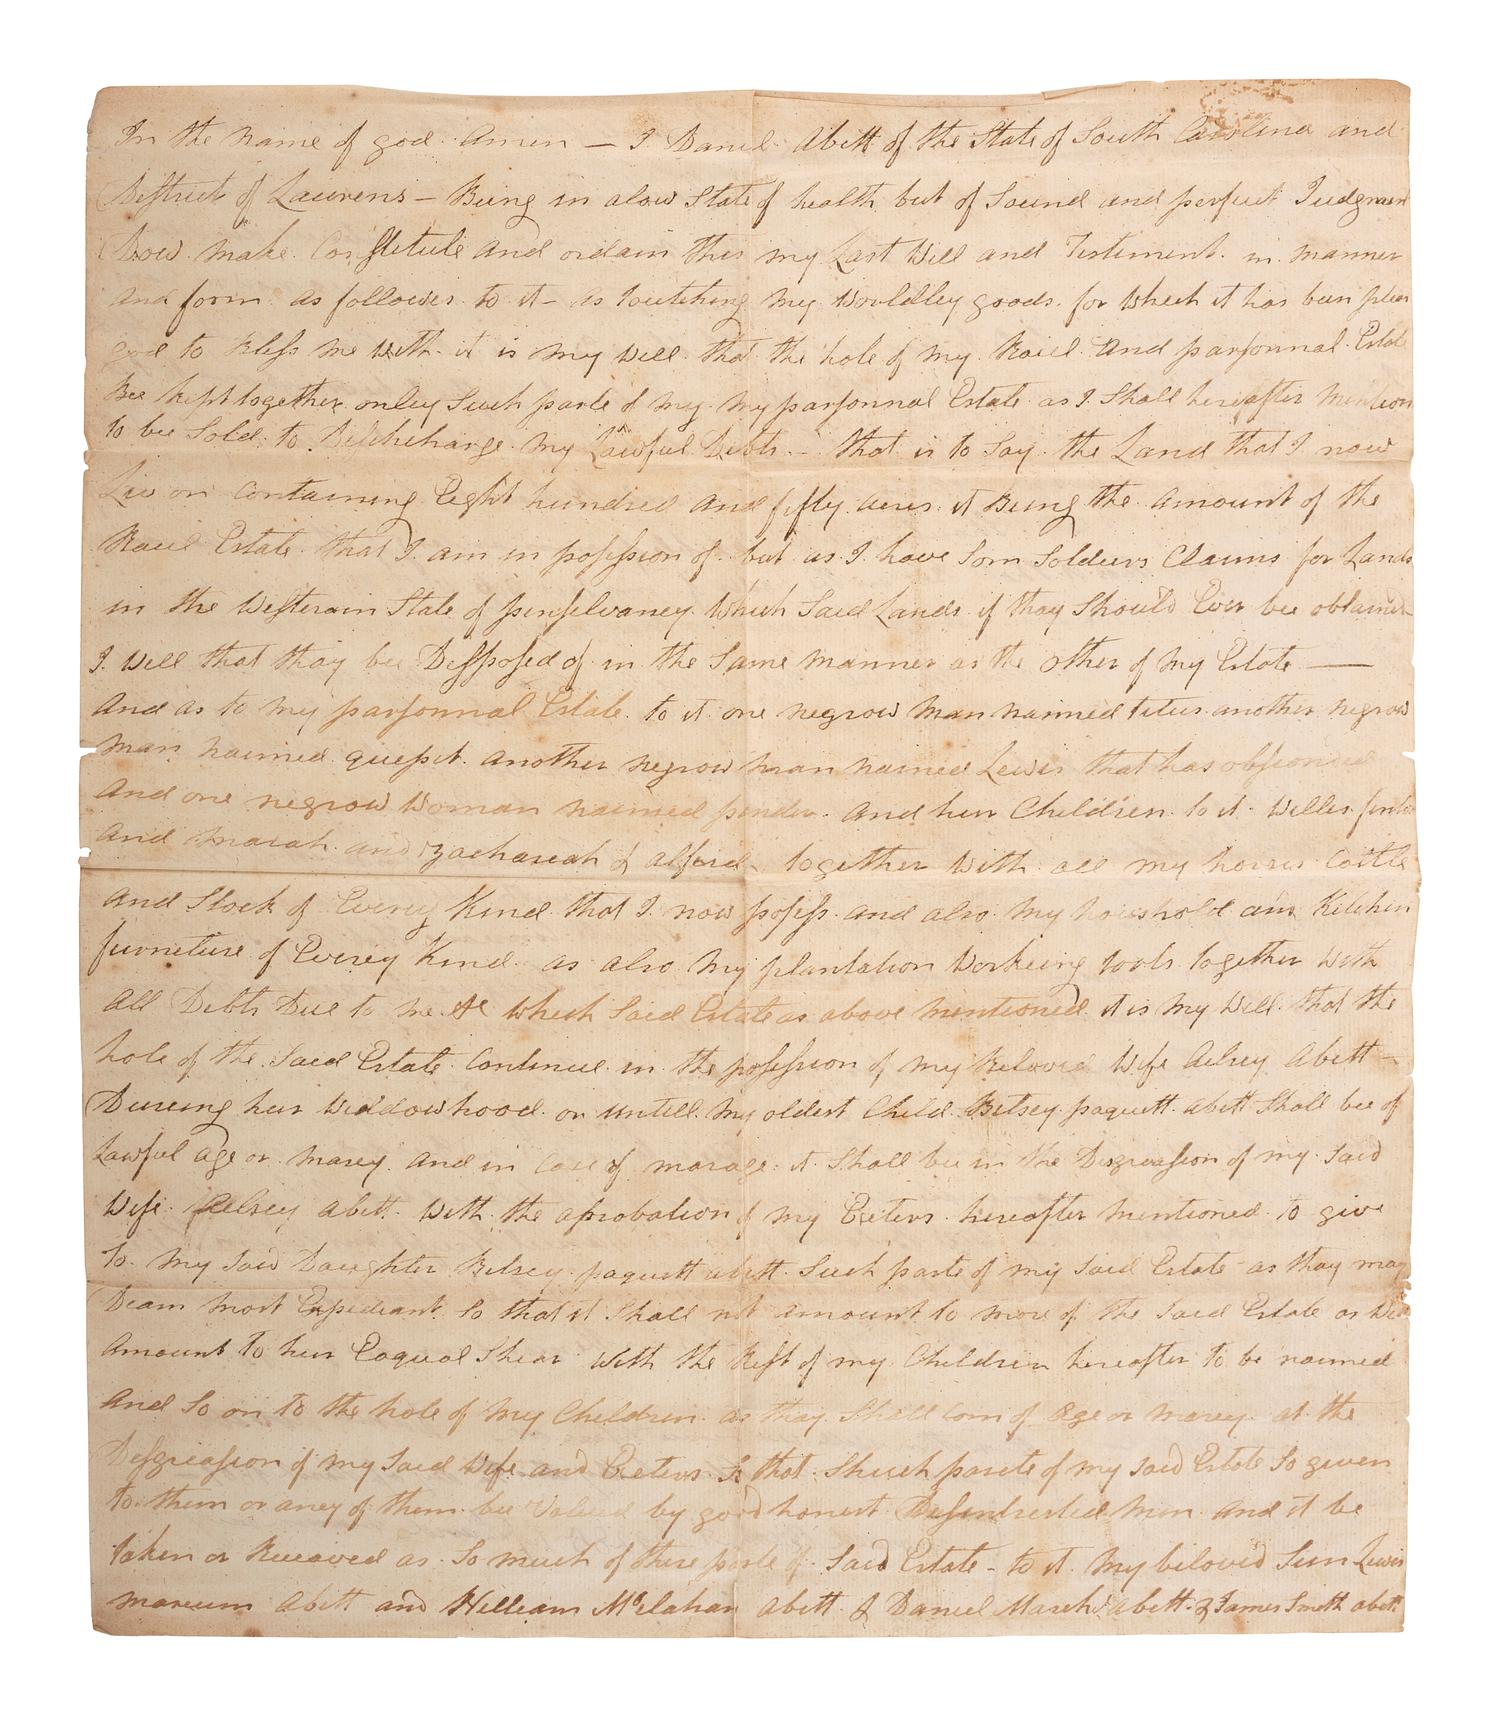 In the Name of god Amen — I Daniel Abett of the State of South Carolina and
District of Laurens — Being in a low State of health but of Sound and perfict Judgment
Dow make Constitute and ordain this my Last Will and Testiment in manner
and form as followes to it — as toutching my Worldley goods for Which it has been pleas
god to Bless me With it is my Will that the hole of my Raiel and parsonnal Estate
Bee kept together onley Such parte of my my parsonnal Estate as I Shall hereafter mention
to bee Sold to Dischcharge my Lawful Debts — that is to Say the Land that I now
Liv on Containing Eight hundred and fifty acres it Being the amount of the
Raiel Estate that I am in possession of but as I have Som Soldiers Claims for Lands
in the Westerain State of pinselvaney Which Said Lands if thay Should Ever bee obtained
I Will that thay bee Dissposed of in the Same manner as the other of my Estate —
And as to my parsonnal Estate to it one negrow man naimed titus another negrow
man naimed another negrow man naimed Lewis that has
And one negrow Woman naimed pender and her Children to it Willis
and Mariah and Zachareah & alford together With all my horses Cattle
and Stock of Everey Kind that I now possess and also my houshold and Kitchen
furneture of Everey Kind as also my plantation Workeing tools together With
all Debts Due to me Which Said Estate as above mentioned it is my Will that the
hole of the Said Estate Continue in the possession of my Beloved Wife Ailsey Abett —
Dureing her Widdowhood or untill my oldest Child Betsey paquett abett Shall bee of
Lawful age or marey and in Case of marage it Shall bee in the Disgreassion of my Said
Wife Ailsey Abett With the aprobation of my Exetors hereafter mentioned to give
to my Said Daughter Betsey paquett abett Such parte of my Said Estate as thay may
Deam most Expediant So that it Shall not amount to more of the Said Estate as Will
Amount to her Eaqual Shear With the Rest of my Children hereafter to be naimed
And So on to the hole of my Children as thay Shall Com of age or marey at the
Disgreassion of my Said Wife and Exetors So that Shuch parte of my Said Estate So given
to them or aney of them bee Valued by good honest Disintrested men and it be
taken or Receaved as So much of there parte of Said Estate — to it my beloved Sun Lewis
mareum Abett and William McClahan Abett & Daniel March Abett & James Smith abett